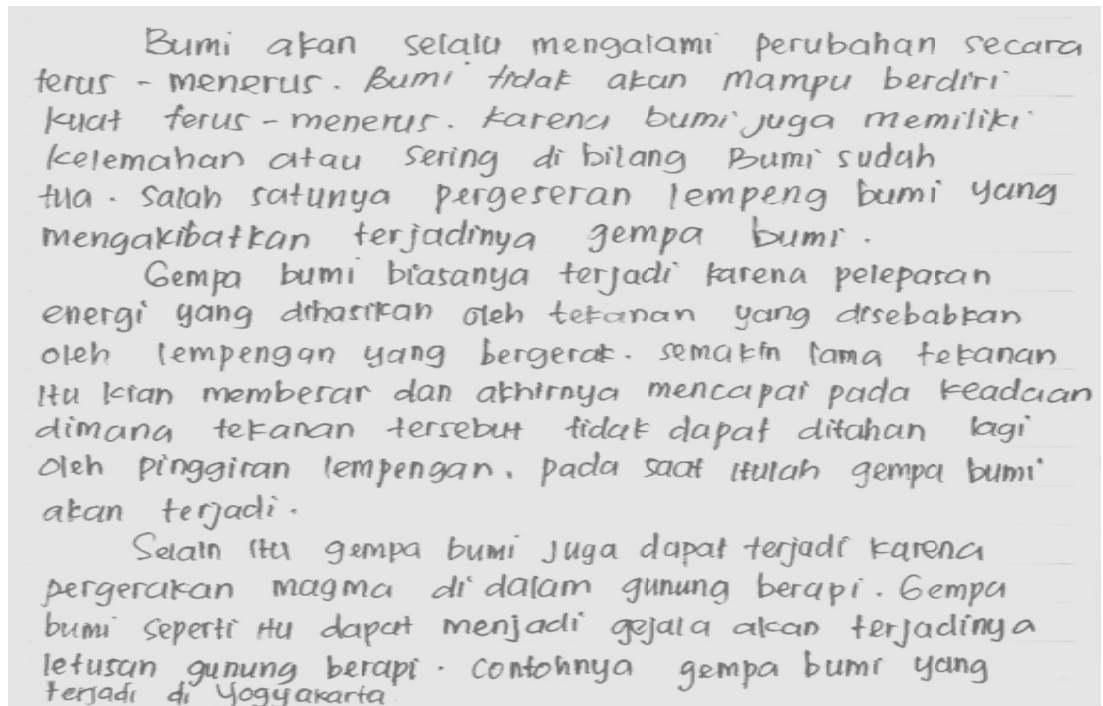 Bumi akan selalu mengalami perubahan secara
terus - menerus. Bumi tidak akan mampu berdiri
kuat terus - menerus. Karena bumi juga memiliki
kelemahan atau sering di bilang Bumi sudah
tua. Salah satunya pergeseran lempeng bumi yang
mengakibatkan terjadinya gempa bumi.
Gempa bumi biasanya terjadi karena pelepasan
energi yang dihasilkan oleh tekanan yang disebabkan
oleh lempengan yang bergerak. semakin lama tekanan
itu kian membesar dan akhirnya mencapai pada keadaan
dimana tekanan tersebut tidak dapat ditahan lagi
oleh pinggiran lempengan. pada saat itulah gempa bumi
akan terjadi.
Selain itu gempa bumi juga dapat terjadi karena
pergerakan magma di dalam gunung berapi. Gempa
bumi seperti itu dapat menjadi gejala akan terjadinya
letusan gunung berapi. contohnya gempa bumi yang
terjadi di Yogyakarta